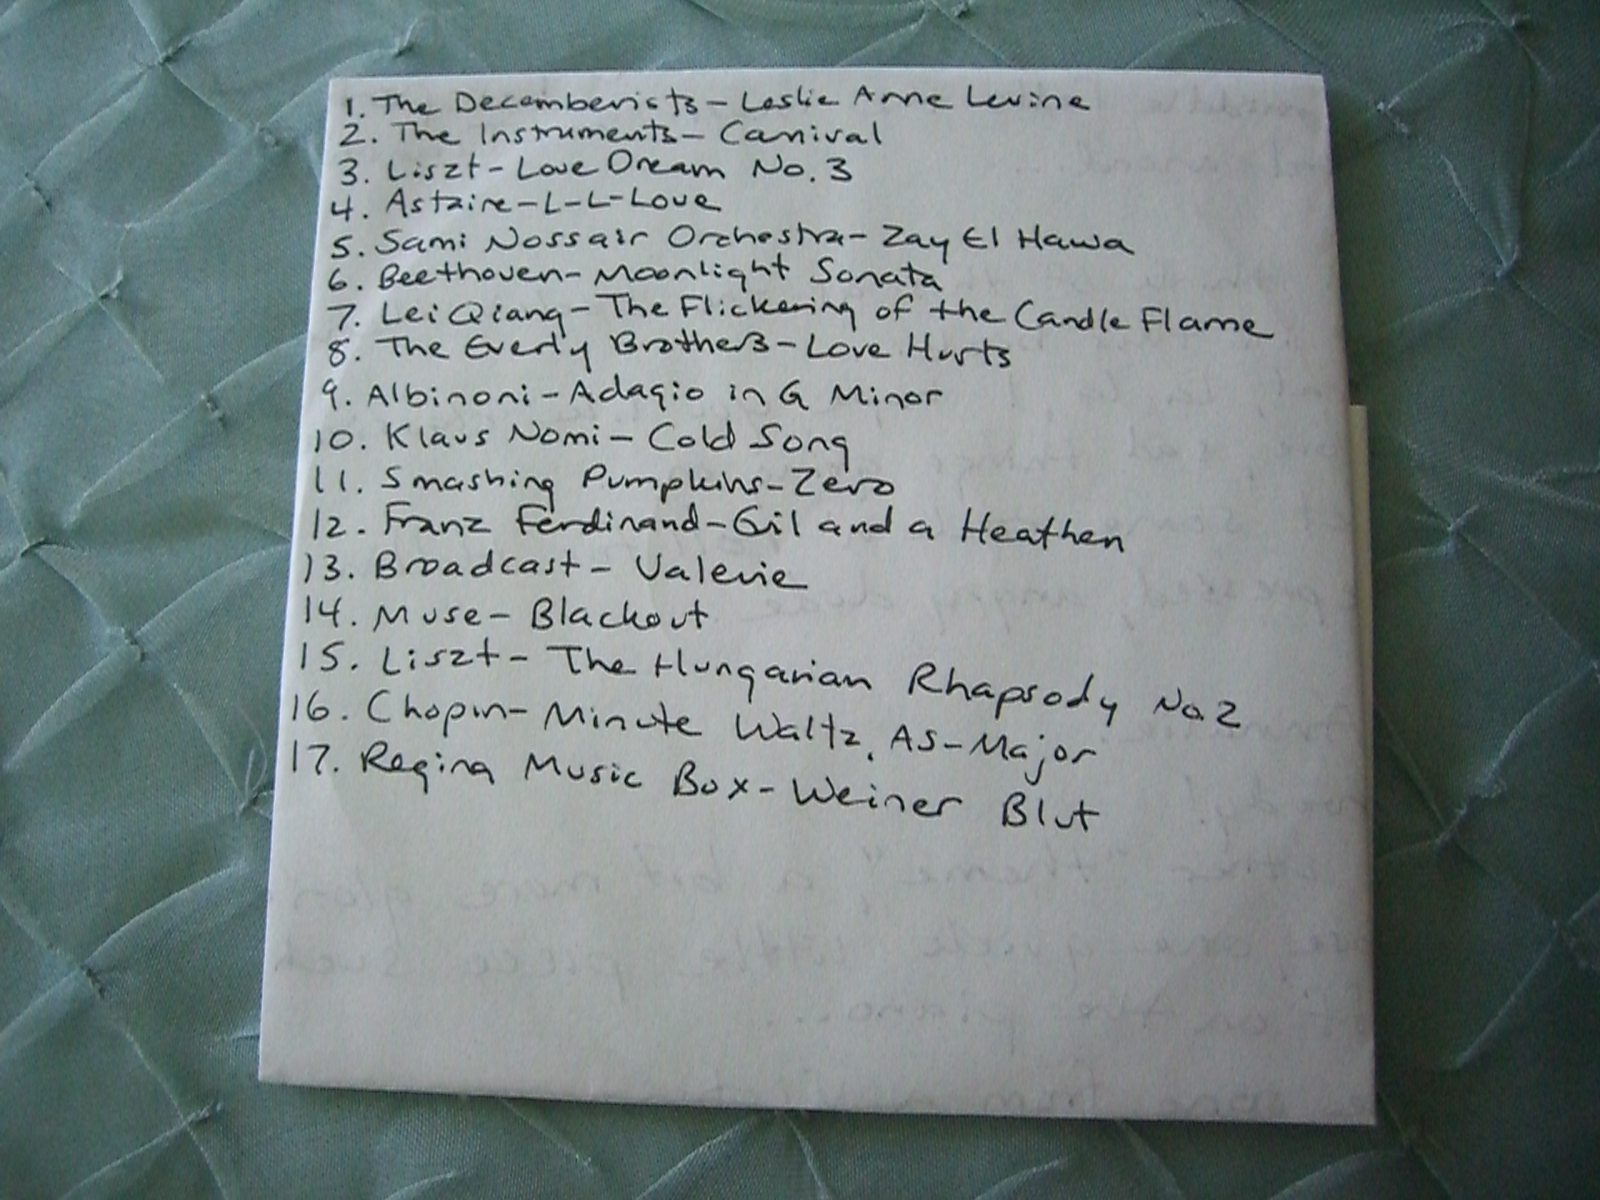 1. The Decemberists - Leslie Anne Levine
2. The Instruments - Carnival
3. Liszt - Love Dream No. 3
4. Astaire - L-L-Love
5. Sami Nossair Orchestra - Zay El Hawa
6. Beethoven - Moonlight Sonata
7. Lei Qiang - The Flickering of the Candle Flame
8. The Everly Brothers - Love Hurts
9. Albinoni - Adagio in G Minor
10. Klaus Nomi - Cold Song
11. Smashing Pumpkins - Zero
12. Franz Ferdinand - Gil and a Heathen
13. Broadcast - Valerie
14. Muse - Blackout
15. Liszt - The Hungarian Rhapsody No. 2
16. Chopin - Minute Waltz, AS-Major
17. Regina Music Box - Weiner Blut